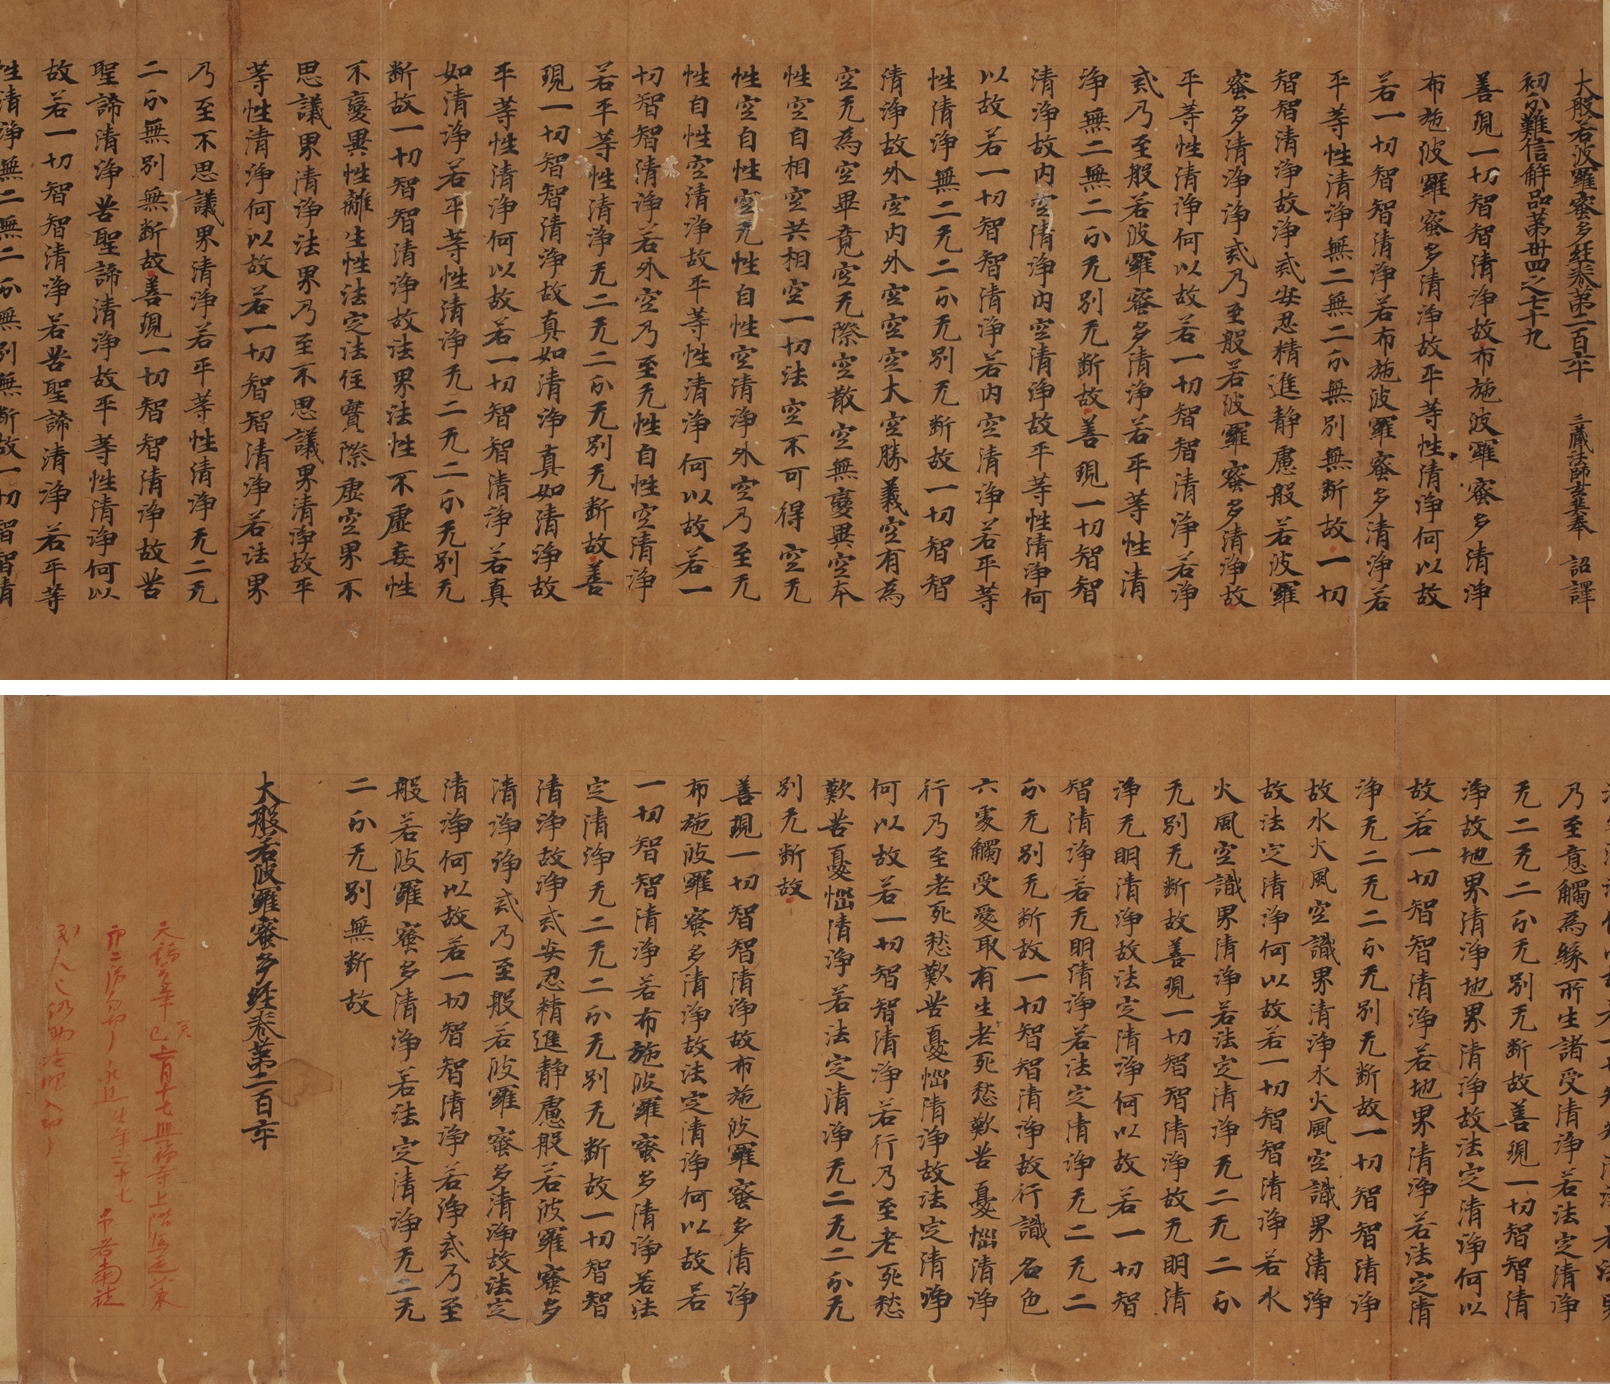 大般若波羅蜜多經卷第二百六十　三藏法師玄奘奉　詔譯
初分難信解品第卅四之七十九
善現一切智智清淨故布施波羅蜜多清淨
布施波羅蜜多清淨故平等性清淨何以故
若一切智智清淨若布施波羅蜜多清淨若
平等性清淨無二無二分無別無斷故一切
智智清淨故淨戒安忍精進靜慮般若波羅
蜜多清淨淨戒乃至般若波羅蜜多清淨故
平等性清淨何以故若一切智智清淨若淨
戒乃至般若波羅蜜多清淨若平等性清
淨無二無二分无別无斷故善現一切智智
清淨故内空清淨内空清淨故平等性清淨何
以故若一切智智清淨若内空清淨若平等
性清淨無二无二分无別无斷故一切智智
清淨故外空内外空空空大空勝義空有為
空无為空畢竟空无際空散空無變異空本
性空自相空共相空一切法空不可得空无
性空自性空无性自性空清淨外空乃至无
性自性空清淨故平等性清淨何以故若一
切智智清淨若外空乃至无性自性空清淨
若平等性清淨无二无二分无別无斷故善
現一切智智清淨故真如清淨真如清淨故
平等性清淨何以故若一切智智清淨若真
如清淨若平等性清淨无二无二分无別无
斷故一切智智清淨故法界法性不虛妄性
不變異性離生性法定法住實際虛空界不
思議界清淨法界乃至不思議界清淨故平
等性清淨何以故若一切智智清淨若法界
乃至不思議界清淨若平等性清淨无二无
二分無別無斷故善現一切智智清淨故苦
聖諦清淨苦聖諦清淨故平等性清淨何以
故若一切智智清淨若苦聖諦清淨若平等
性清淨無二無二分無別無斷故一切智智清
乃至意觸為緣所生諸受清淨若法定清淨
无二无二分无別无斷故善現一切智智清
淨故地界清淨地界清淨故法定清淨何以
故若一切智智清淨若地界清淨若法定清
淨无二无二分无別无斷故一切智智清淨
故水火風空識界清淨水火風空識界清淨
故法定清淨何以故若一切智智清淨若水
火風空識界清淨若法定清淨无二无二分
无別无斷故善現一切智智清淨故无明清
淨无明清淨故法定清淨何以故若一切智
智清淨若无明清淨若法定清淨无二无二
分无別无斷故一切智智清淨故行識名色
六處觸受愛取有生老死愁歎苦憂惱清淨
行乃至老死愁歎苦憂惱清淨故法定清淨
何以故若一切智智清淨若行乃至老死愁
歎苦憂惱清淨若法定清淨无二无二分无
別无斷故
善現一切智智清淨故布施波羅蜜多清淨
布施波羅蜜多清淨故法定清淨何以故若
一切智智清淨若布施波羅蜜多清淨若法
定清淨无二无二分无別无斷故一切智智
清淨故淨戒安忍精進靜慮般若波羅蜜多
清淨淨戒乃至般若波羅蜜多清淨故法定
清淨何以故若一切智智清淨若淨戒乃至
般若波羅蜜多清淨若法定清淨无二无
二分无別無斷故
大般若波羅蜜多經卷第二百六十